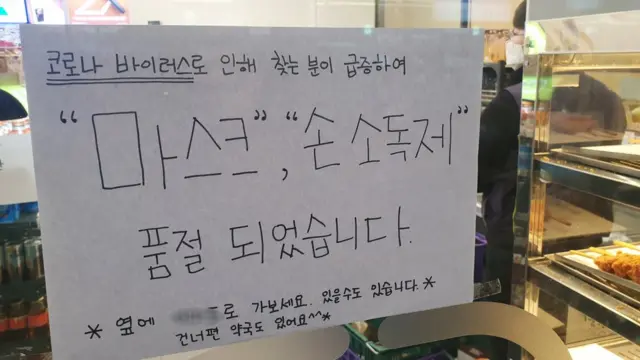 코로나 바이러스로 인해 찾는 분이 급증하여
“마스크”, “손 소독제”
품절 되었습니다.
* 옆에 로 가보세요. 있을수도 있습니다. *
건너편 약국도 있어요^^*